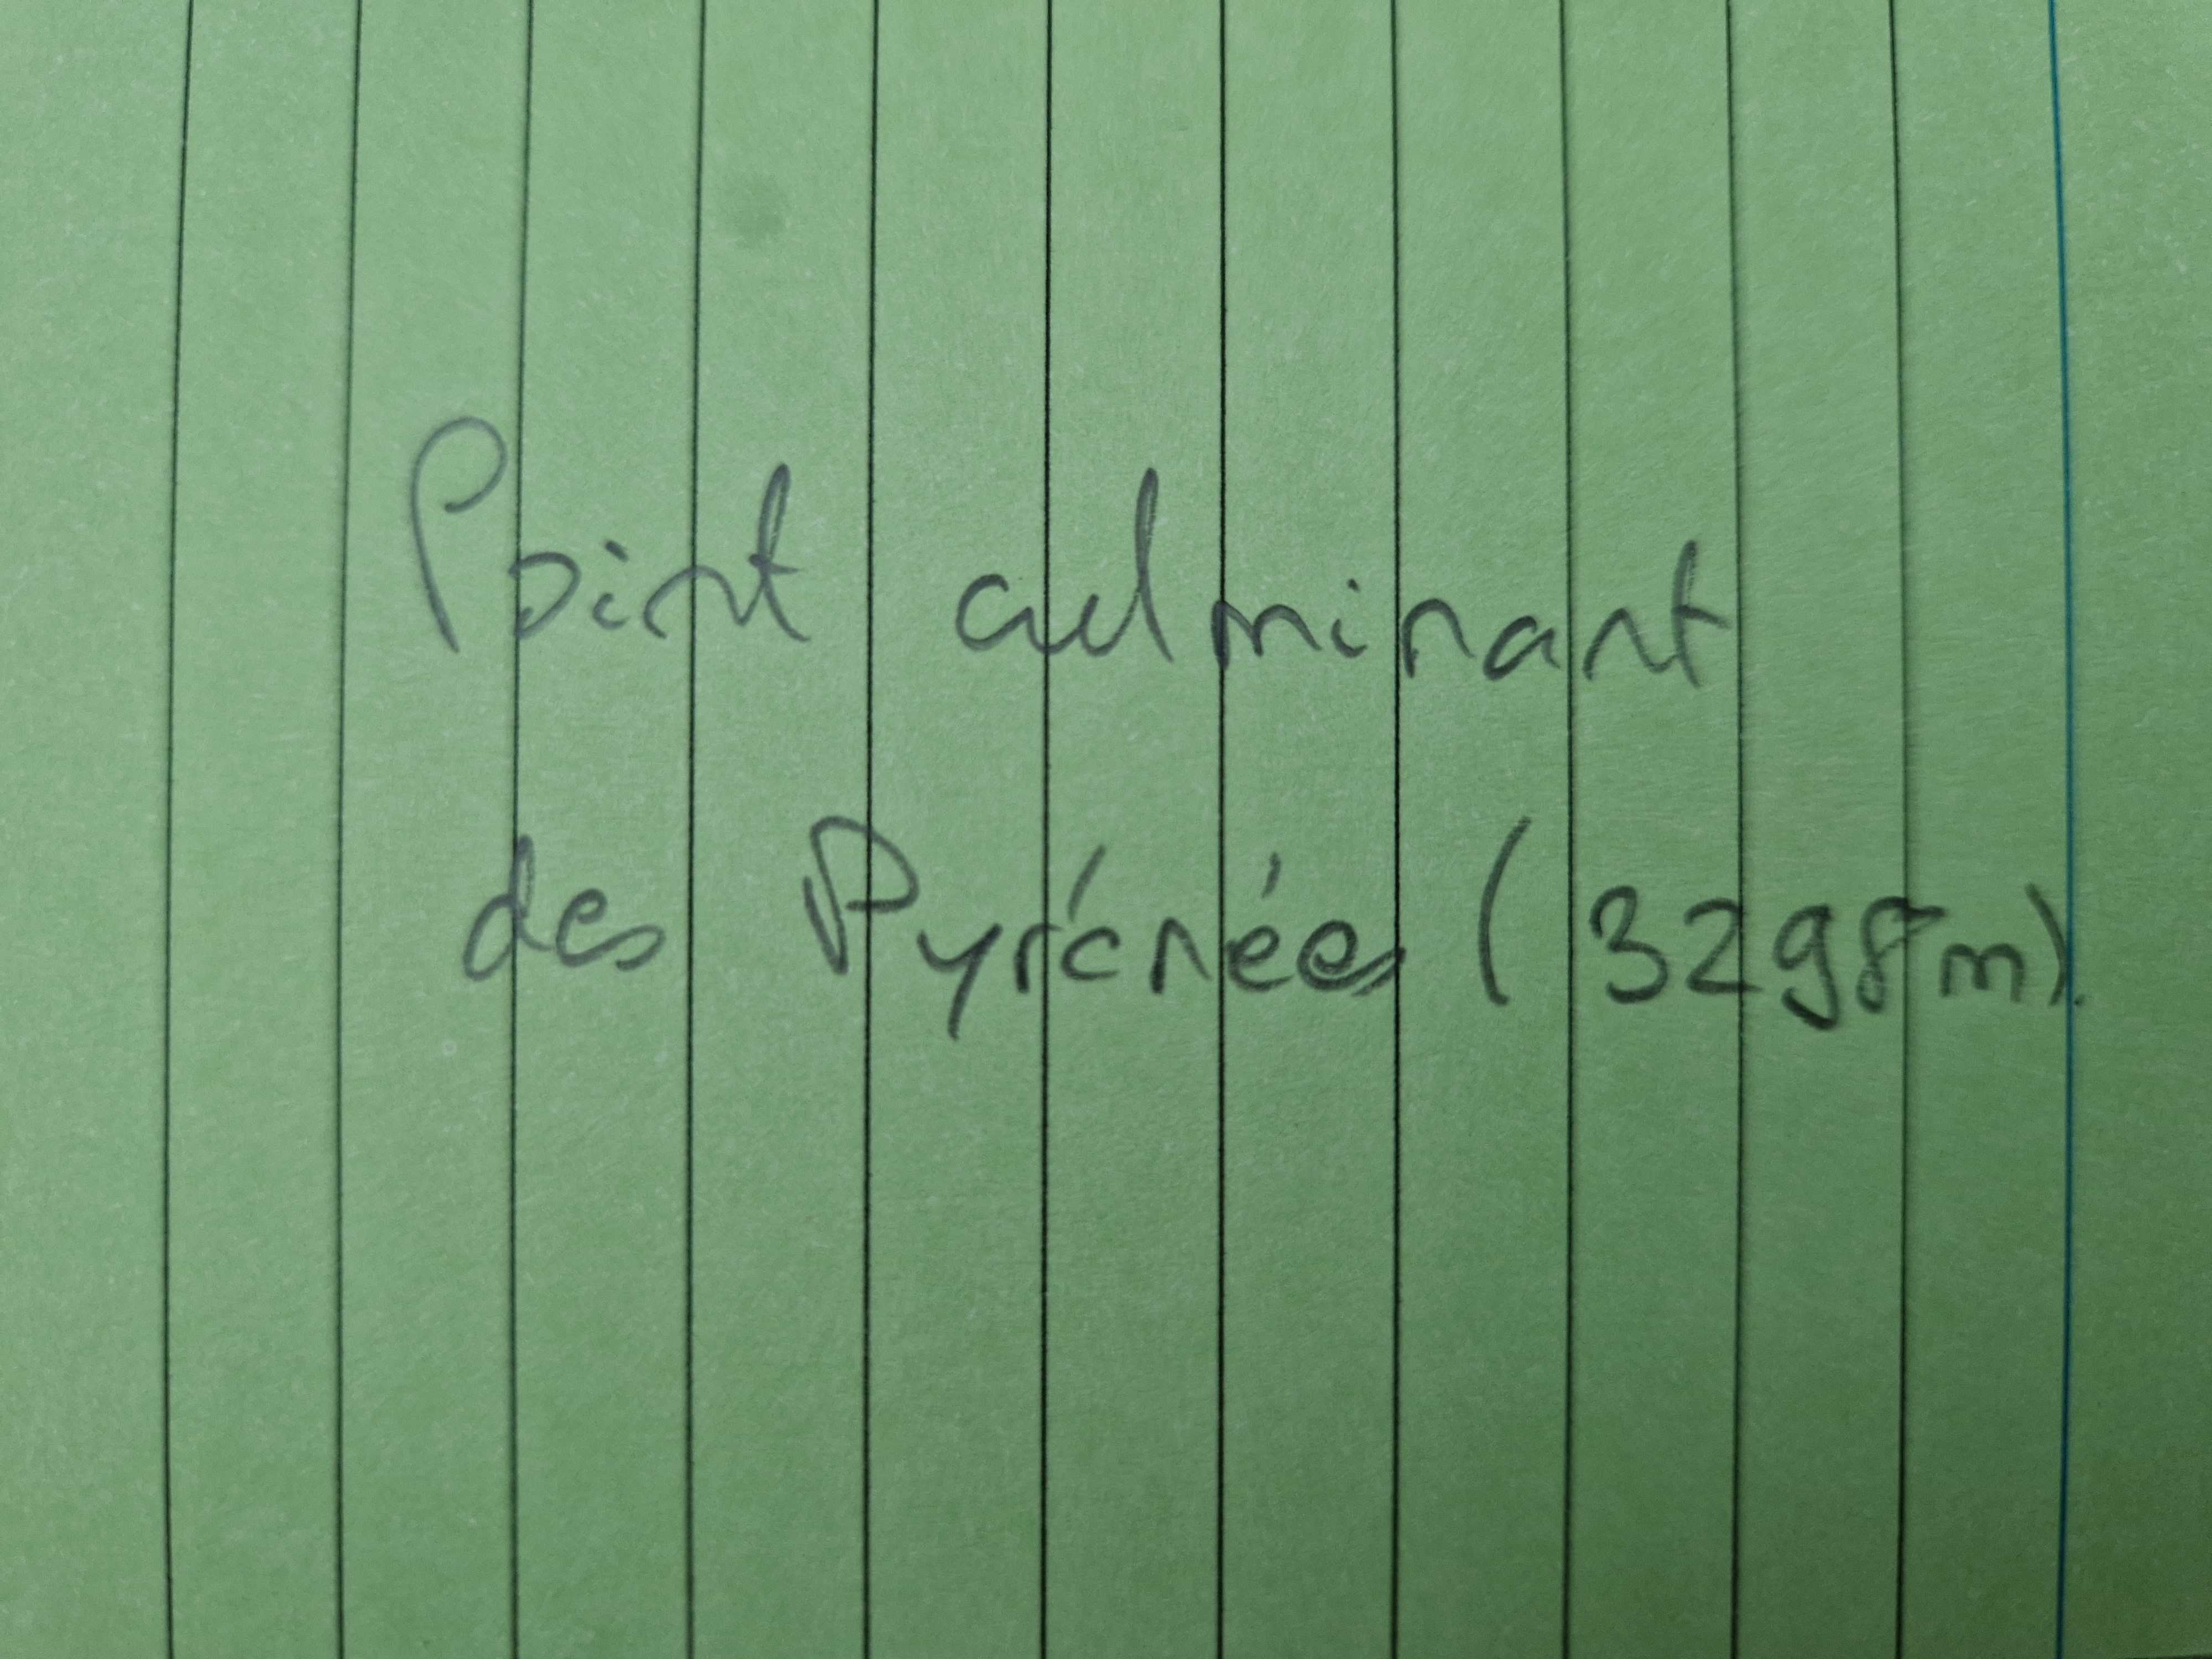 Point culminant
des Pyrénées (3298m).